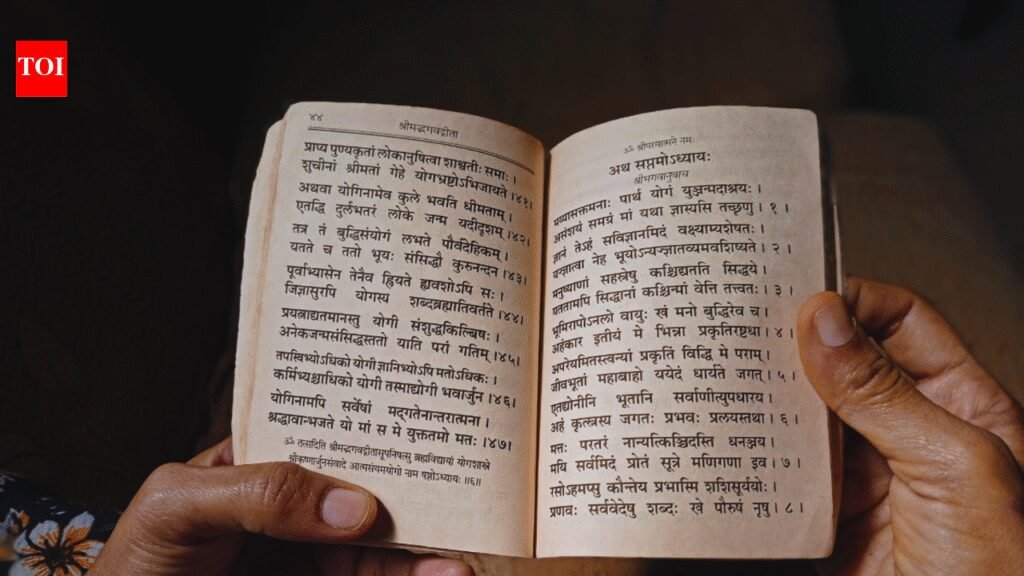 TOI
४४
श्रीमद्भगवद्गीता
प्राप्य पुण्यकृतां लोकानुषित्वा शाश्वतीः समाः ।
शुचीनां श्रीमतां गेहे योगभ्रष्टोऽभिजायते ।४१।
अथवा योगिनामेव कुले भवति धीमताम् ।
एतद्धि दुर्लभतरं लोके जन्म यदीदृशम् ।४२।
तत्र तं बुद्धिसंयोगं लभते पौर्वदेहिकम् ।
यतते च ततो भूयः संसिद्धौ कुरुनन्दन ।४३।
पूर्वाभ्यासेन तेनैव ह्रियते ह्यवशोऽपि सः ।
जिज्ञासुरपि योगस्य शब्दब्रह्मातिवर्तते ।४४।
प्रयत्नाद्यतमानस्तु योगी संशुद्धकिल्बिषः ।
अनेकजन्मसंसिद्धस्ततो याति परां गतिम् ।४५।
तपस्विभ्योऽधिको योगी ज्ञानिभ्योऽपि मतोऽधिकः ।
कर्मिभ्यश्चाधिको योगी तस्माद्योगी भवार्जुन ।४६।
योगिनामपि सर्वेषां मद्गतेनान्तरात्मना ।
श्रद्धावान्भजते यो मां स मे युक्ततमो मतः ।४७।
ॐ तत्सदिति श्रीमद्भगवद्गीतासूपनिषत्सु ब्रह्मविद्यायां योगशास्त्रे
श्रीकृष्णार्जुनसंवादे आत्मसंयमयोगो नाम षष्ठोऽध्यायः ॥६॥
ॐ श्रीपरमात्मने नमः
अथ सप्तमोऽध्यायः
श्रीभगवानुवाच
मय्यासक्तमनाः पार्थ योगं युञ्जन्मदाश्रयः ।
असंशयं समग्रं मां यथा ज्ञास्यसि तच्छृणु । १ ।
ज्ञानं तेऽहं सविज्ञानमिदं वक्ष्याम्यशेषतः ।
यज्ज्ञात्वा नेह भूयोऽन्यज्ज्ञातव्यमवशिष्यते । २ ।
मनुष्याणां सहस्रेषु कश्चिद्यतति सिद्धये ।
यततामपि सिद्धानां कश्चिन्मां वेत्ति तत्त्वतः । ३ ।
भूमिरापोऽनलो वायुः खं मनो बुद्धिरेव च ।
अहंकार इतीयं मे भिन्ना प्रकृतिरष्टधा । ४ ।
अपरेयमितस्त्वन्यां प्रकृतिं विद्धि मे पराम् ।
जीवभूतां महाबाहो ययेदं धार्यते जगत् । ५ ।
एतद्योनीनि भूतानि सर्वाणीत्युपधारय ।
अहं कृत्स्नस्य जगतः प्रभवः प्रलयस्तथा । ६ ।
मत्तः परतरं नान्यत्किञ्चिदस्ति धनञ्जय ।
मयि सर्वमिदं प्रोतं सूत्रे मणिगणा इव । ७ ।
रसोऽहमप्सु कौन्तेय प्रभास्मि शशिसूर्ययोः ।
प्रणवः सर्ववेदेषु शब्दः खे पौरुषं नृषु । ८ ।